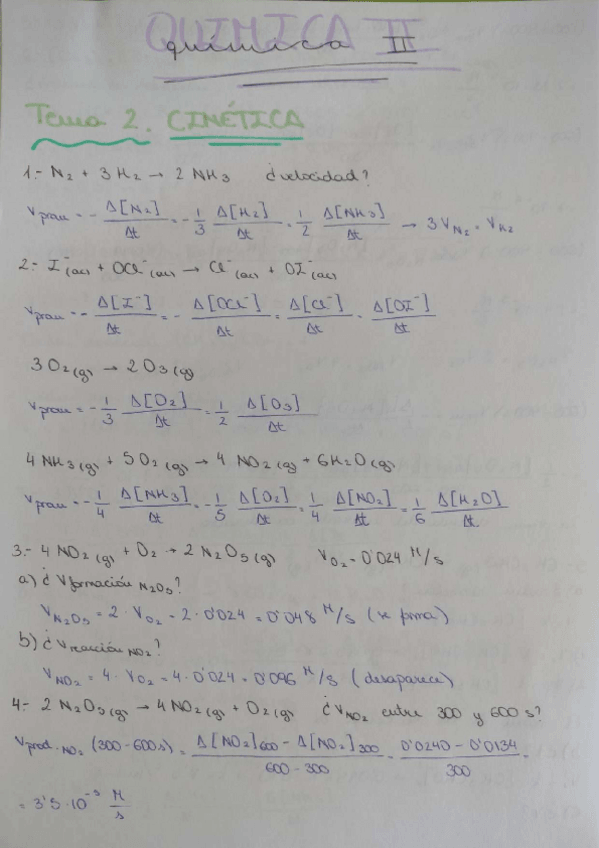 QUÍMICA II
química II
Tema 2. CINÉTICA
1.- N₂ + 3 H₂ → 2 NH₃ ¿velocidad?
v_reac = - Δ[N₂]/Δt = - 1/3 Δ[H₂]/Δt = 1/2 Δ[NH₃]/Δt → 3 V_N₂ = V_H₂
2.- I⁻(ac) + OCl⁻(ac) → Cl⁻(ac) + OI⁻(ac)
v_reac = - Δ[I⁻]/Δt = - Δ[OCl⁻]/Δt = Δ[Cl⁻]/Δt = Δ[OI⁻]/Δt
3 O₂(g) → 2 O₃(g)
v_reac = - 1/3 Δ[O₂]/Δt = 1/2 Δ[O₃]/Δt
4 NH₃(g) + 5 O₂(g) → 4 NO₂(g) + 6 H₂O(g)
v_reac = - 1/4 Δ[NH₃]/Δt = - 1/5 Δ[O₂]/Δt = 1/4 Δ[NO₂]/Δt = 1/6 Δ[H₂O]/Δt
3.- 4 NO₂(g) + O₂ → 2 N₂O₅(g) V_O₂ = 0'024 M/s
a) ¿V formación N₂O₅?
V_N₂O₅ = 2 · V_O₂ = 2 · 0'024 = 0'048 M/s (se forma)
b) ¿V reacción NO₂?
V_NO₂ = 4 · V_O₂ = 4 · 0'024 = 0'096 M/s (desaparece)
4.- 2 N₂O₅(g) → 4 NO₂(g) + O₂(g) ¿V_NO₂ entre 300 y 600 s?
V prod. NO₂ (300-600s) = Δ[NO₂]₆₀₀ - Δ[NO₂]₃₀₀ / 600 - 300 = 0'0240 - 0'0134 / 300 =
= 3'5·10⁻⁵ M/s